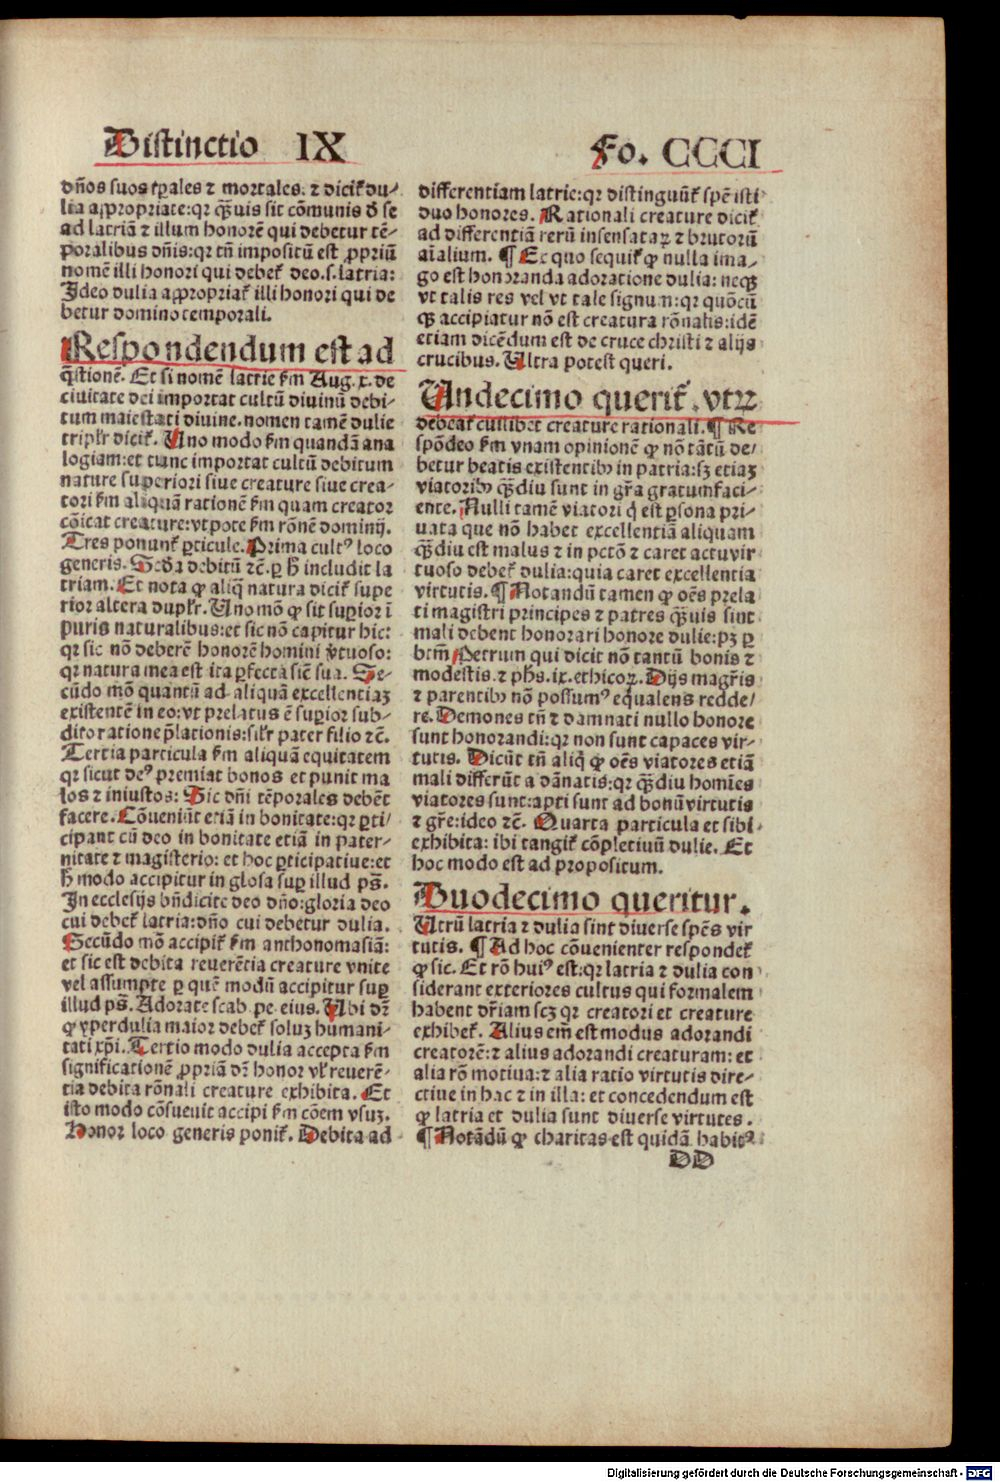 Distinctio IX
Fo. CCCI
dños suos tp̄ales ⁊ mortales. ⁊ dicit᷑ du⸗
lia apropriate: qꝛ qͣuis sit cõmunis ð se
ad latriã ⁊ illum honorē qui debetur tē⸗
poralibus dñis: qꝛ tñ impositũ est ꝓpriũ
nomē illi honori qui debet᷑ deo .s. latria:
Ideo dulia aꝓpropriat᷑ illi honori qui de
betur domino temporali.
Respondendum est ad
q̄stionē. Et si nomē latrie ẜm Aug. x. de
ciuitate dei importat cultũ diuinũ debi⸗
tum maiestati diuine. nomen tamē dulie
triplr̄ dicit᷑. Uno modo ẜm quandã ana
logiam: et tunc importat cultũ debitum
nature superiori siue creature siue crea⸗
tori ẜm aliquã rationē ẜm quam creator
cõicat creature: vtpote ẜm rõnē dominij.
Tres ponunt᷑ ꝑticule. Prima cultꝰ loco
generis. Scd̃a debitũ ⁊c̄. ꝑ h̄ includit la
triam. Et nota ꝙ aliq̃ natura dicit᷑ supe
rior altera duplr̄. Uno mõ ꝙ sit suꝑior ĩ
puris naturalibus: et sic nõ capitur hic:
qꝛ sic nõ deberē honorē homini v̓tuoso:
qꝛ natura mea est ita ꝑfecta sic̄ sua. Se⸗
cũdo mõ quantũ ad aliquã excellentiaꝫ
existentē in eo: vt prelatus ē suꝑior sub⸗
dito ratione p̄lationis: silr̄ pater filio ⁊c̄.
Tertia particula ẜm aliquã equitatem
qꝛ sicut deꝰ premiat bonos et punit ma
los ⁊ iniustos: Sic dñi tēporales debēt
facere. Cõueniũt etiã in bonitate: qꝛ ꝑti⸗
cipant cũ deo in bonitate etiã in pater⸗
nitate ⁊ magisterio: et hoc ꝑticipatiue: et
h̄ modo accipitur in glosa suꝑ illud ps̄.
In ecclesijs bñdicite deo dño: gloria deo
cui debet᷑ latria: dño cui debetur dulia.
Secũdo mõ accipit᷑ ẜm anthonomasiã:
et sic est debita reuerētia creature vnite
vel assumpte ꝑ quē modũ accipitur suꝑ
illud ps̄. Adorate scab. pe. eius. Ubi dr̄
ꝙ yperdulia maior debet᷑ soluꝫ humani⸗
tati xp̄i. Tertio modo dulia accepta ẜm
significationē ꝓpriã dꝫ honor vl̓ reuerē⸗
tia debita rõnali creature exhibita. Et
isto modo cõsueuit accipi ẜm cõem vsuꝫ.
Honor loco generis ponit᷑. Debita ad
differentiam latrie: qꝛ distinguũt᷑ spē isti
duo honores. Rationali creature dicit᷑
ad differentiã rerũ insensataꝝ ⁊ brutorũ
aĩalium. ¶ Ex quo sequit᷑ ꝙ nulla ima⸗
go est honoranda adoratione dulia: neqꝫ
vt talis res vel vt tale signum: qꝛ quõcũ
qꝫ accipiatur nõ est creatura rõnalis: idē
etiam dicēdum est de cruce christi ⁊ alijs
crucibus. Ultra potest queri.
Undecimo querit᷑. vtꝝ
debeat᷑ cuilibet creature rationali. ¶ Re
spõdeo ẜm vnam opinionē ꝙ nõ tãtũ de⸗
betur beatis existentibꝰ in patria: sꝫ etiaꝫ
viatoribꝰ qͣdiu sunt in gr̃a gratumfaci⸗
ente. Nulli tamē viatori q̓ est ꝑsona pri⸗
uata que nõ habet excellentiã aliquam
qͣdiu est malus ⁊ in pctõ ⁊ caret actu vir
tuoso debet᷑ dulia: quia caret excellentia
virtutis. ¶ Notandũ tamen ꝙ oēs prela
ti magistri principes ⁊ patres qͣuis sint
mali debent honorari honore dulie: pꝫ ꝑ
btm̄ Petrum qui dicit nõ tantũ bonis ⁊
modestis. ⁊ ph̄s. ix. ethicoꝝ. Dijs magr̃is
⁊ parentibꝰ nõ possumꝰ equalens redde⸗
re. Demones tñ ⁊ damnati nullo honore
sunt honorandi: qꝛ non sunt capaces vir⸗
tutis. Dicũt tñ aliq̓ ꝙ oēs viatores etiã
mali differũt a dãnatis: qꝛ qͣdiu homĩes
viatores sunt: apti sunt ad bonũ virtutis
⁊ gr̃e: ideo ⁊c̄. Quarta particula et sibi
exhibita: ibi tangit᷑ cõpletiuũ dulie. Et
hoc modo est ad propositum.
Duodecimo queritur.
Utrũ latria ⁊ dulia sint diuerse spēs vir
tutis. ¶ Ad hoc cõuenienter respondet᷑
ꝙ sic. Et rõ huiꝰ est: qꝛ latria ⁊ dulia con
siderant exteriores cultus qui formalem
habent dr̄iam scꝫ qꝛ creatori et creature
exhibet᷑. Alius em̄ est modus adorandi
creatorē: ⁊ alius adorandi creaturam: et
alia rõ motiua: ⁊ alia ratio virtutis dire⸗
ctiue in hac ⁊ in illa: et concedendum est
ꝙ latria et dulia sunt diuerse virtutes.
¶ Notãdũ ꝙ charitas est quidã habitꝰ
DD
Digitalisierung gefördert durch die Deutsche Forschungsgemeinschaft - DFG